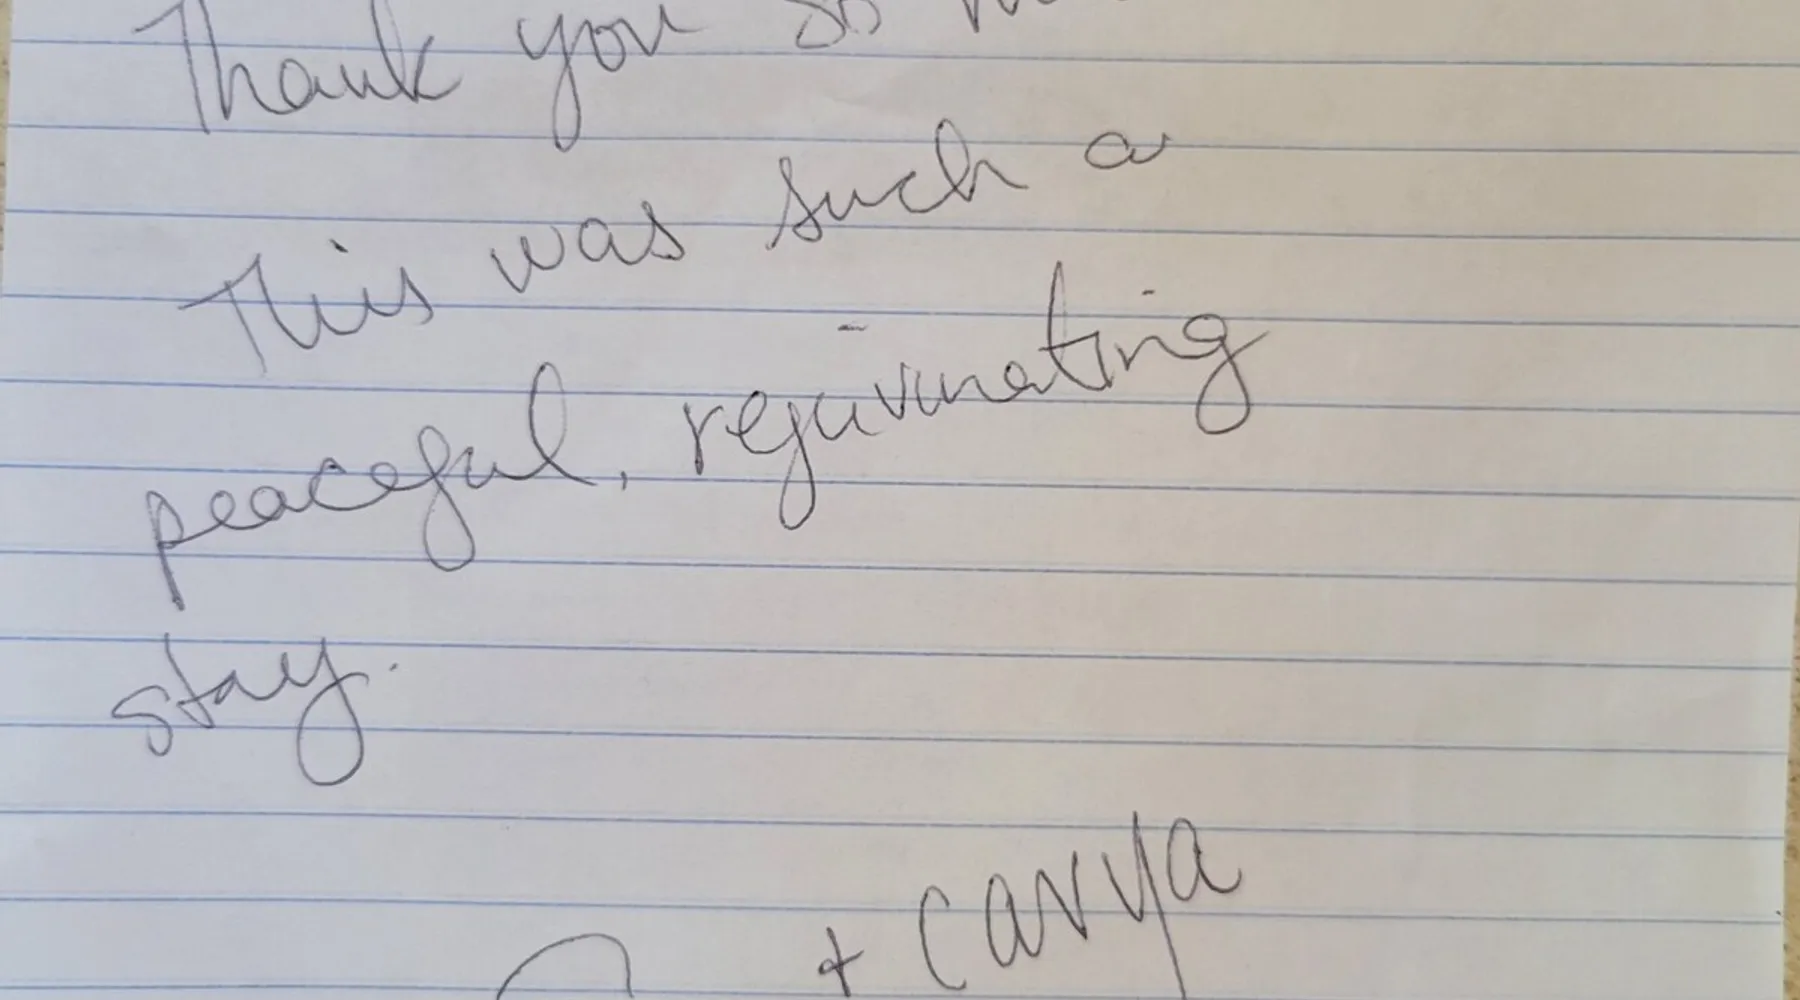 Thank you so
This was such a
peaceful, rejuvinating
stay.
+ Carya